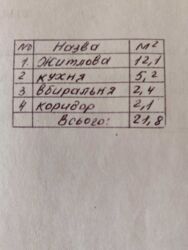 № Назва м²
1 Житлова 12,1
2 кухня 5,2
3 вбиральня 2,4
4 коридор 2,1
Всього: 21,8